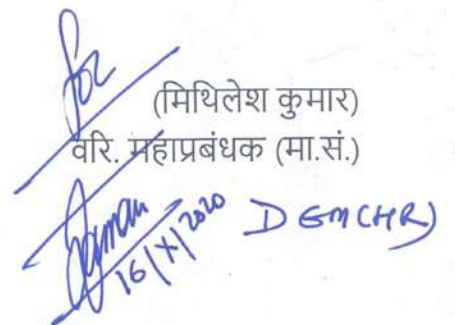 for
(मिथिलेश कुमार)
वरि. महाप्रबंधक (मा.सं.)
16/X/2020 DGM(HR)